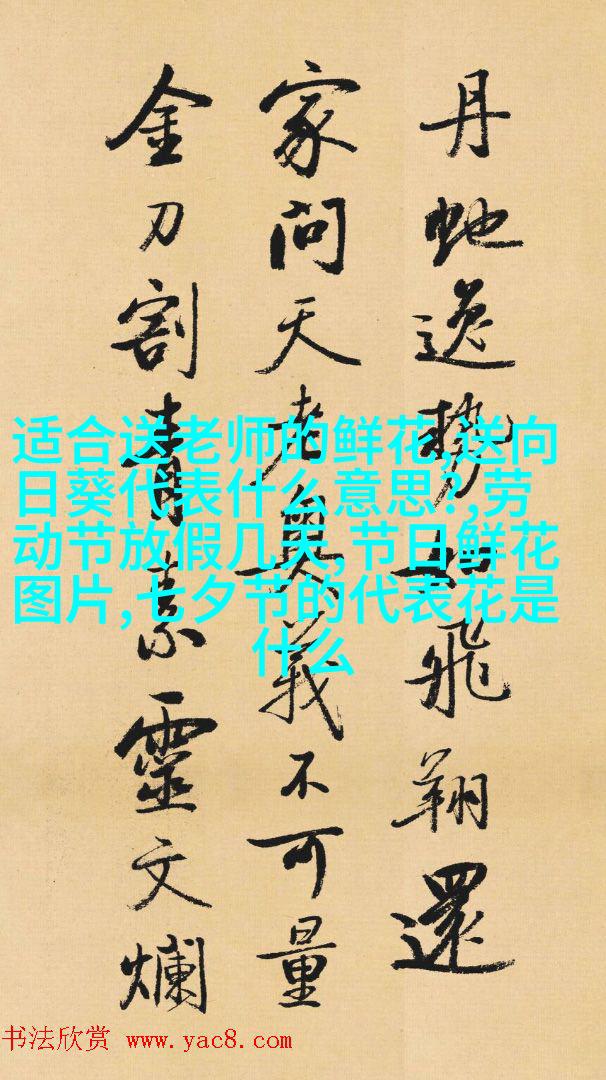 丹虵逸勢如飛翔還
家問天老奥義不可量
金刀割青素靈文爛
适合送老师的鲜花,送向
日葵代表什么意思?,劳
动节放假几天,节日鲜花
图片,七夕节的代表花是
什么
书法欣赏 www.yac8.com